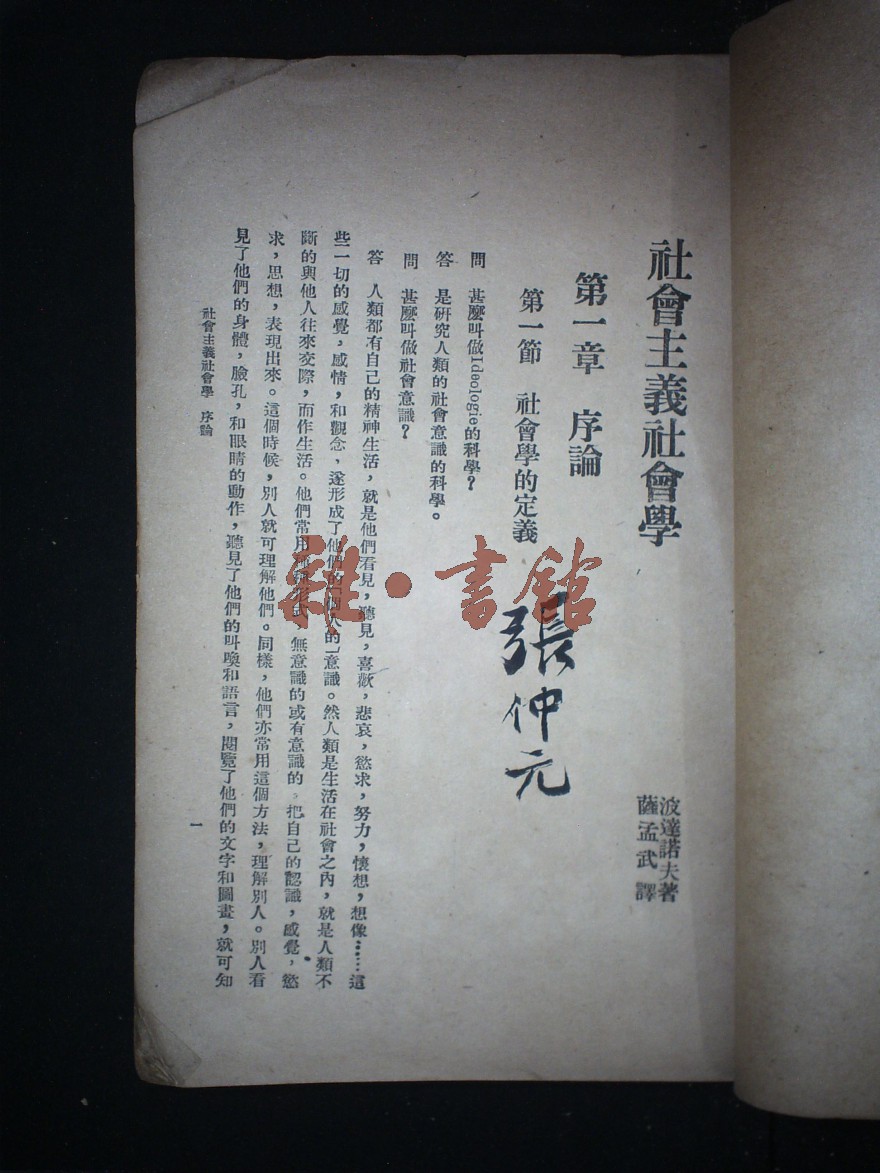 社會主義社會學
波達諾夫著
薩孟武譯
第一章 序論
第一節 社會學的定義
張仲元
問 甚麼叫做Ideologie的科學?
答 是研究人類的社會意識的科學。
問 甚麼叫做社會意識?
答 人類都有自己的精神生活,就是他們看見,聽見,喜歡,悲哀,慾求,努力,懷想,想像……這
些一切的感覺,感情,和觀念,遂形成了他們的「個人的」意識。然人類是生活在社會之內,就是人類不
斷的與他人往來交際,而作生活。他們常用種種形式,無意識的或有意識的。把自己的認識,感覺,慾
求,思想,表現出來。這個時候,別人就可理解他們。同樣,他們亦常用這個方法,理解別人。別人看
見了他們的身體,臉孔,和眼睛的動作,聽見了他們的叫喚和語言,閱覽了他們的文字和圖畫,就可知
社會主義社會學 序論
一
雜·書館